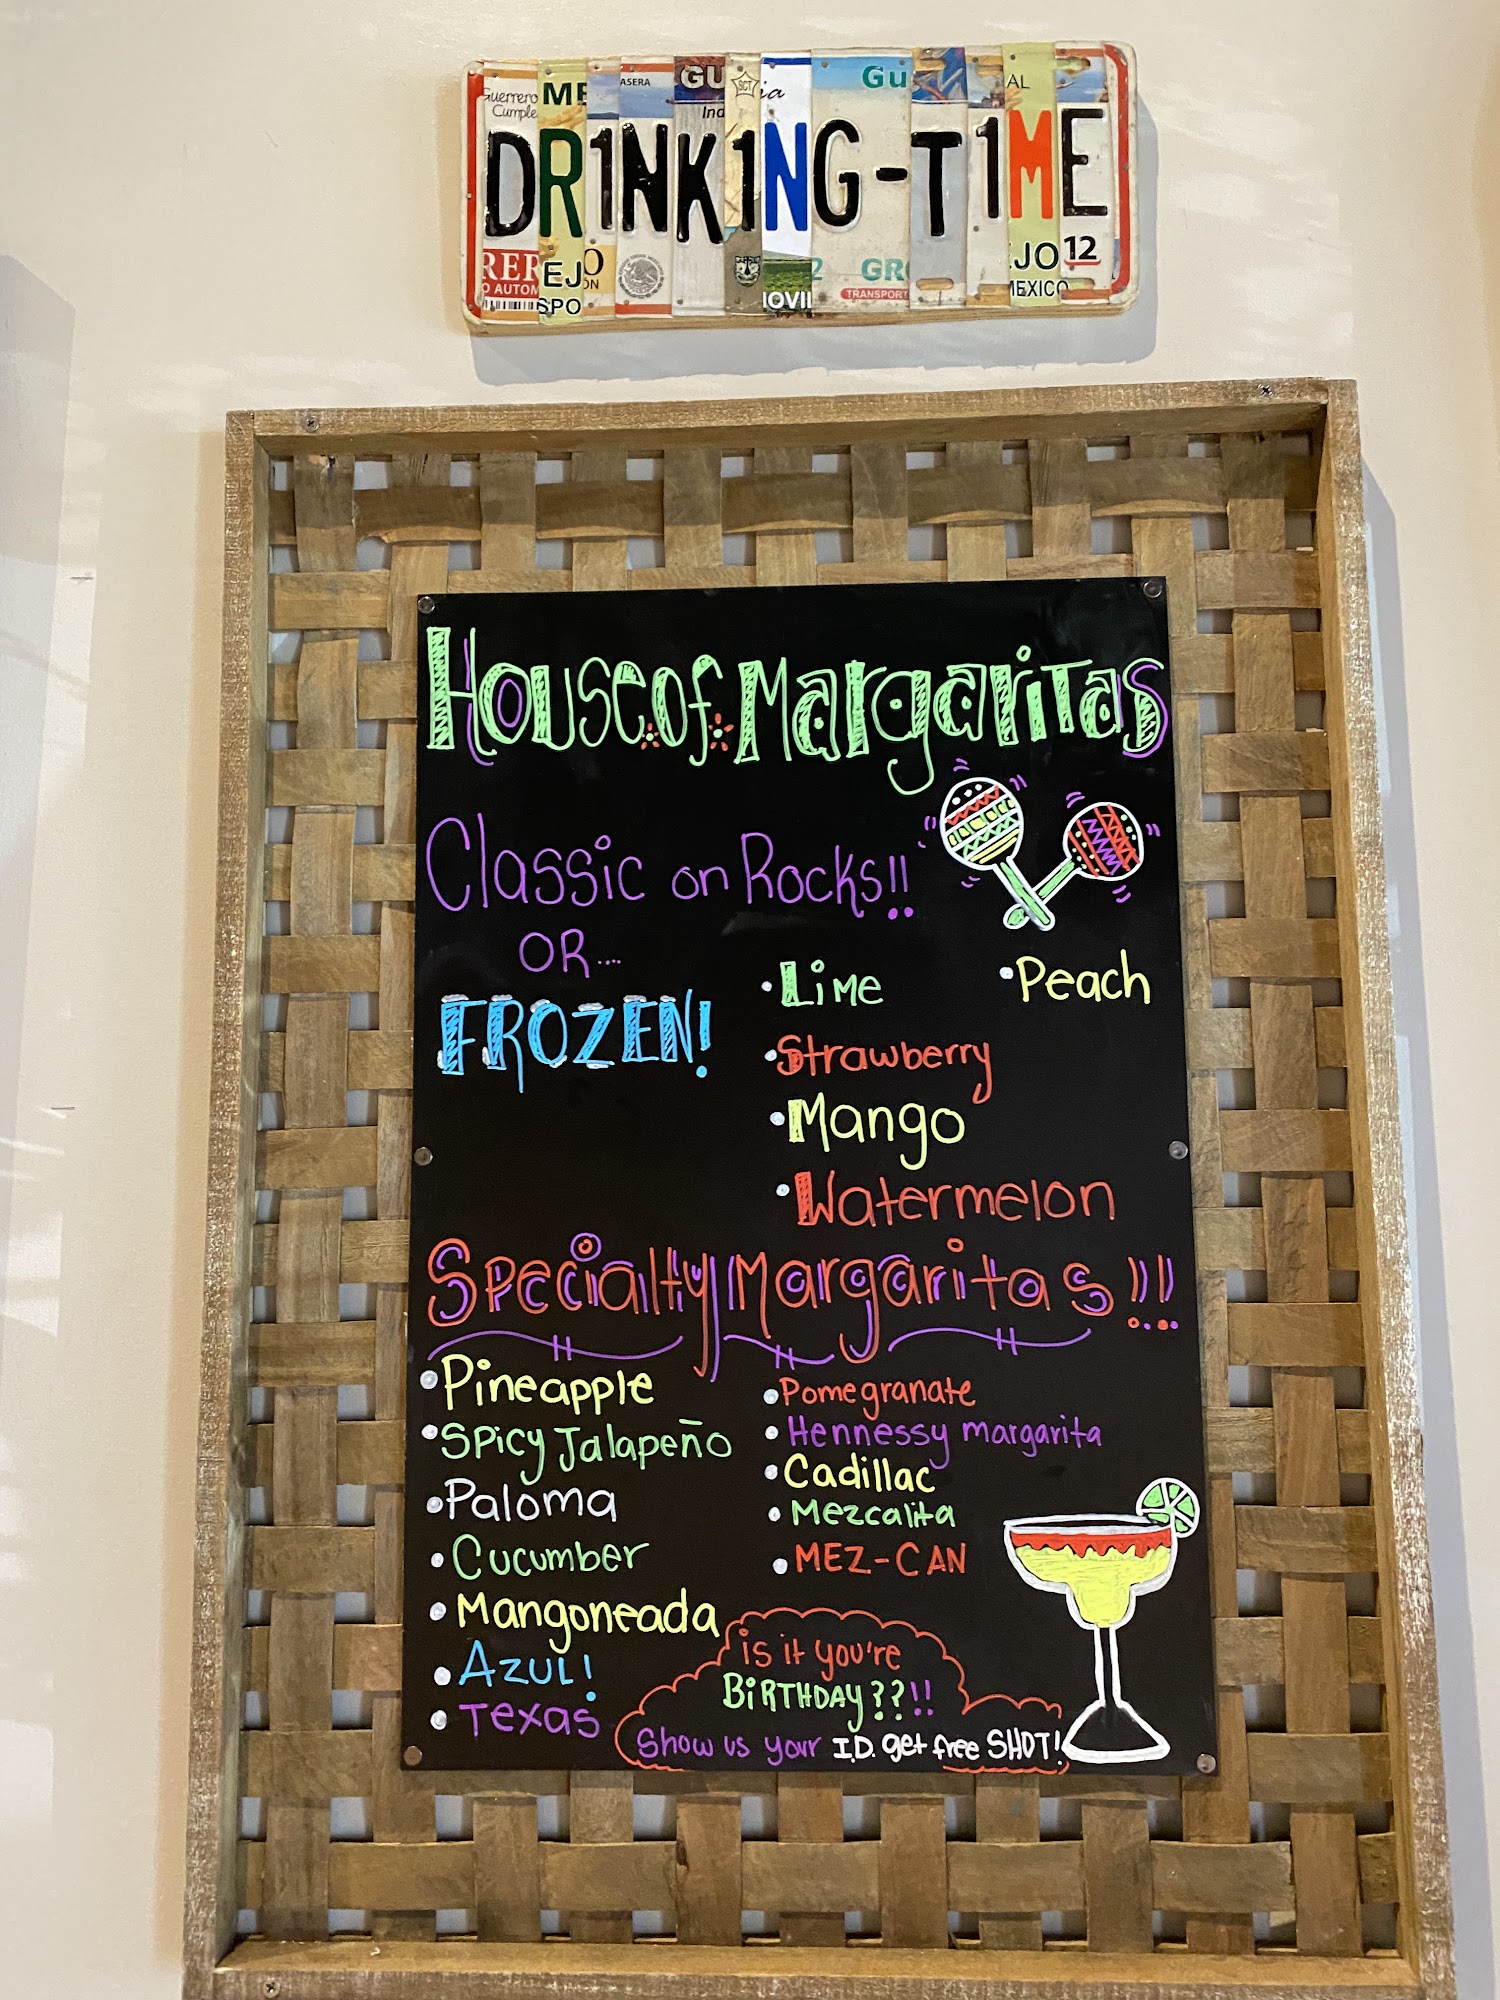 Guerrero ME ASERA GU SCT ia Gu AL
Cumple Ind
DR1NK1NG-T1ME
RER EJ O 2 GR EJO 12
O AUTOM SPO ON MOVIL TRANSPORT MEXICO
House of Margaritas
Classic on Rocks!!
OR....
FROZEN!
• Lime • Peach
• Strawberry
• Mango
• Watermelon
Specialty Margaritas!!!
• Pineapple
• Spicy Jalapeño
• Paloma
• Cucumber
• Mangoneada
• AZUL!
• Texas
• Pomegranate
• Hennessy margarita
• Cadillac
• Mezcalita
• MEZ-CAN
is it you're
BIRTHDAY??!!
Show us your I.D. get free SHOT!